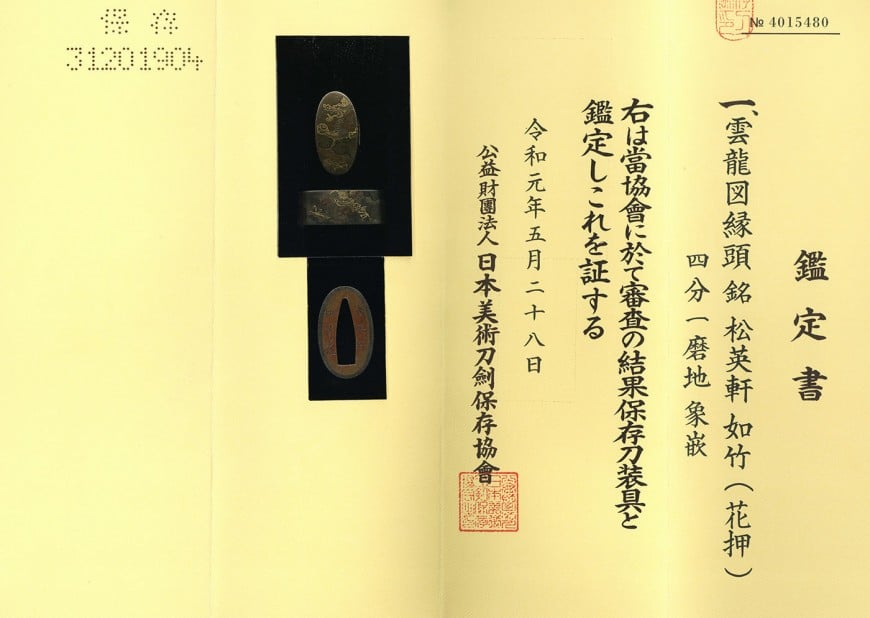 № 4015480
鑑定書
一、雲龍図縁頭 銘 松英軒 如竹(花押)
四分一磨地 象嵌
右は當協會に於て審査の結果保存刀装具と
鑑定しこれを証する
令和元年五月二十八日
公益財團法人 日本美術刀劍保存協會
保存
31201904